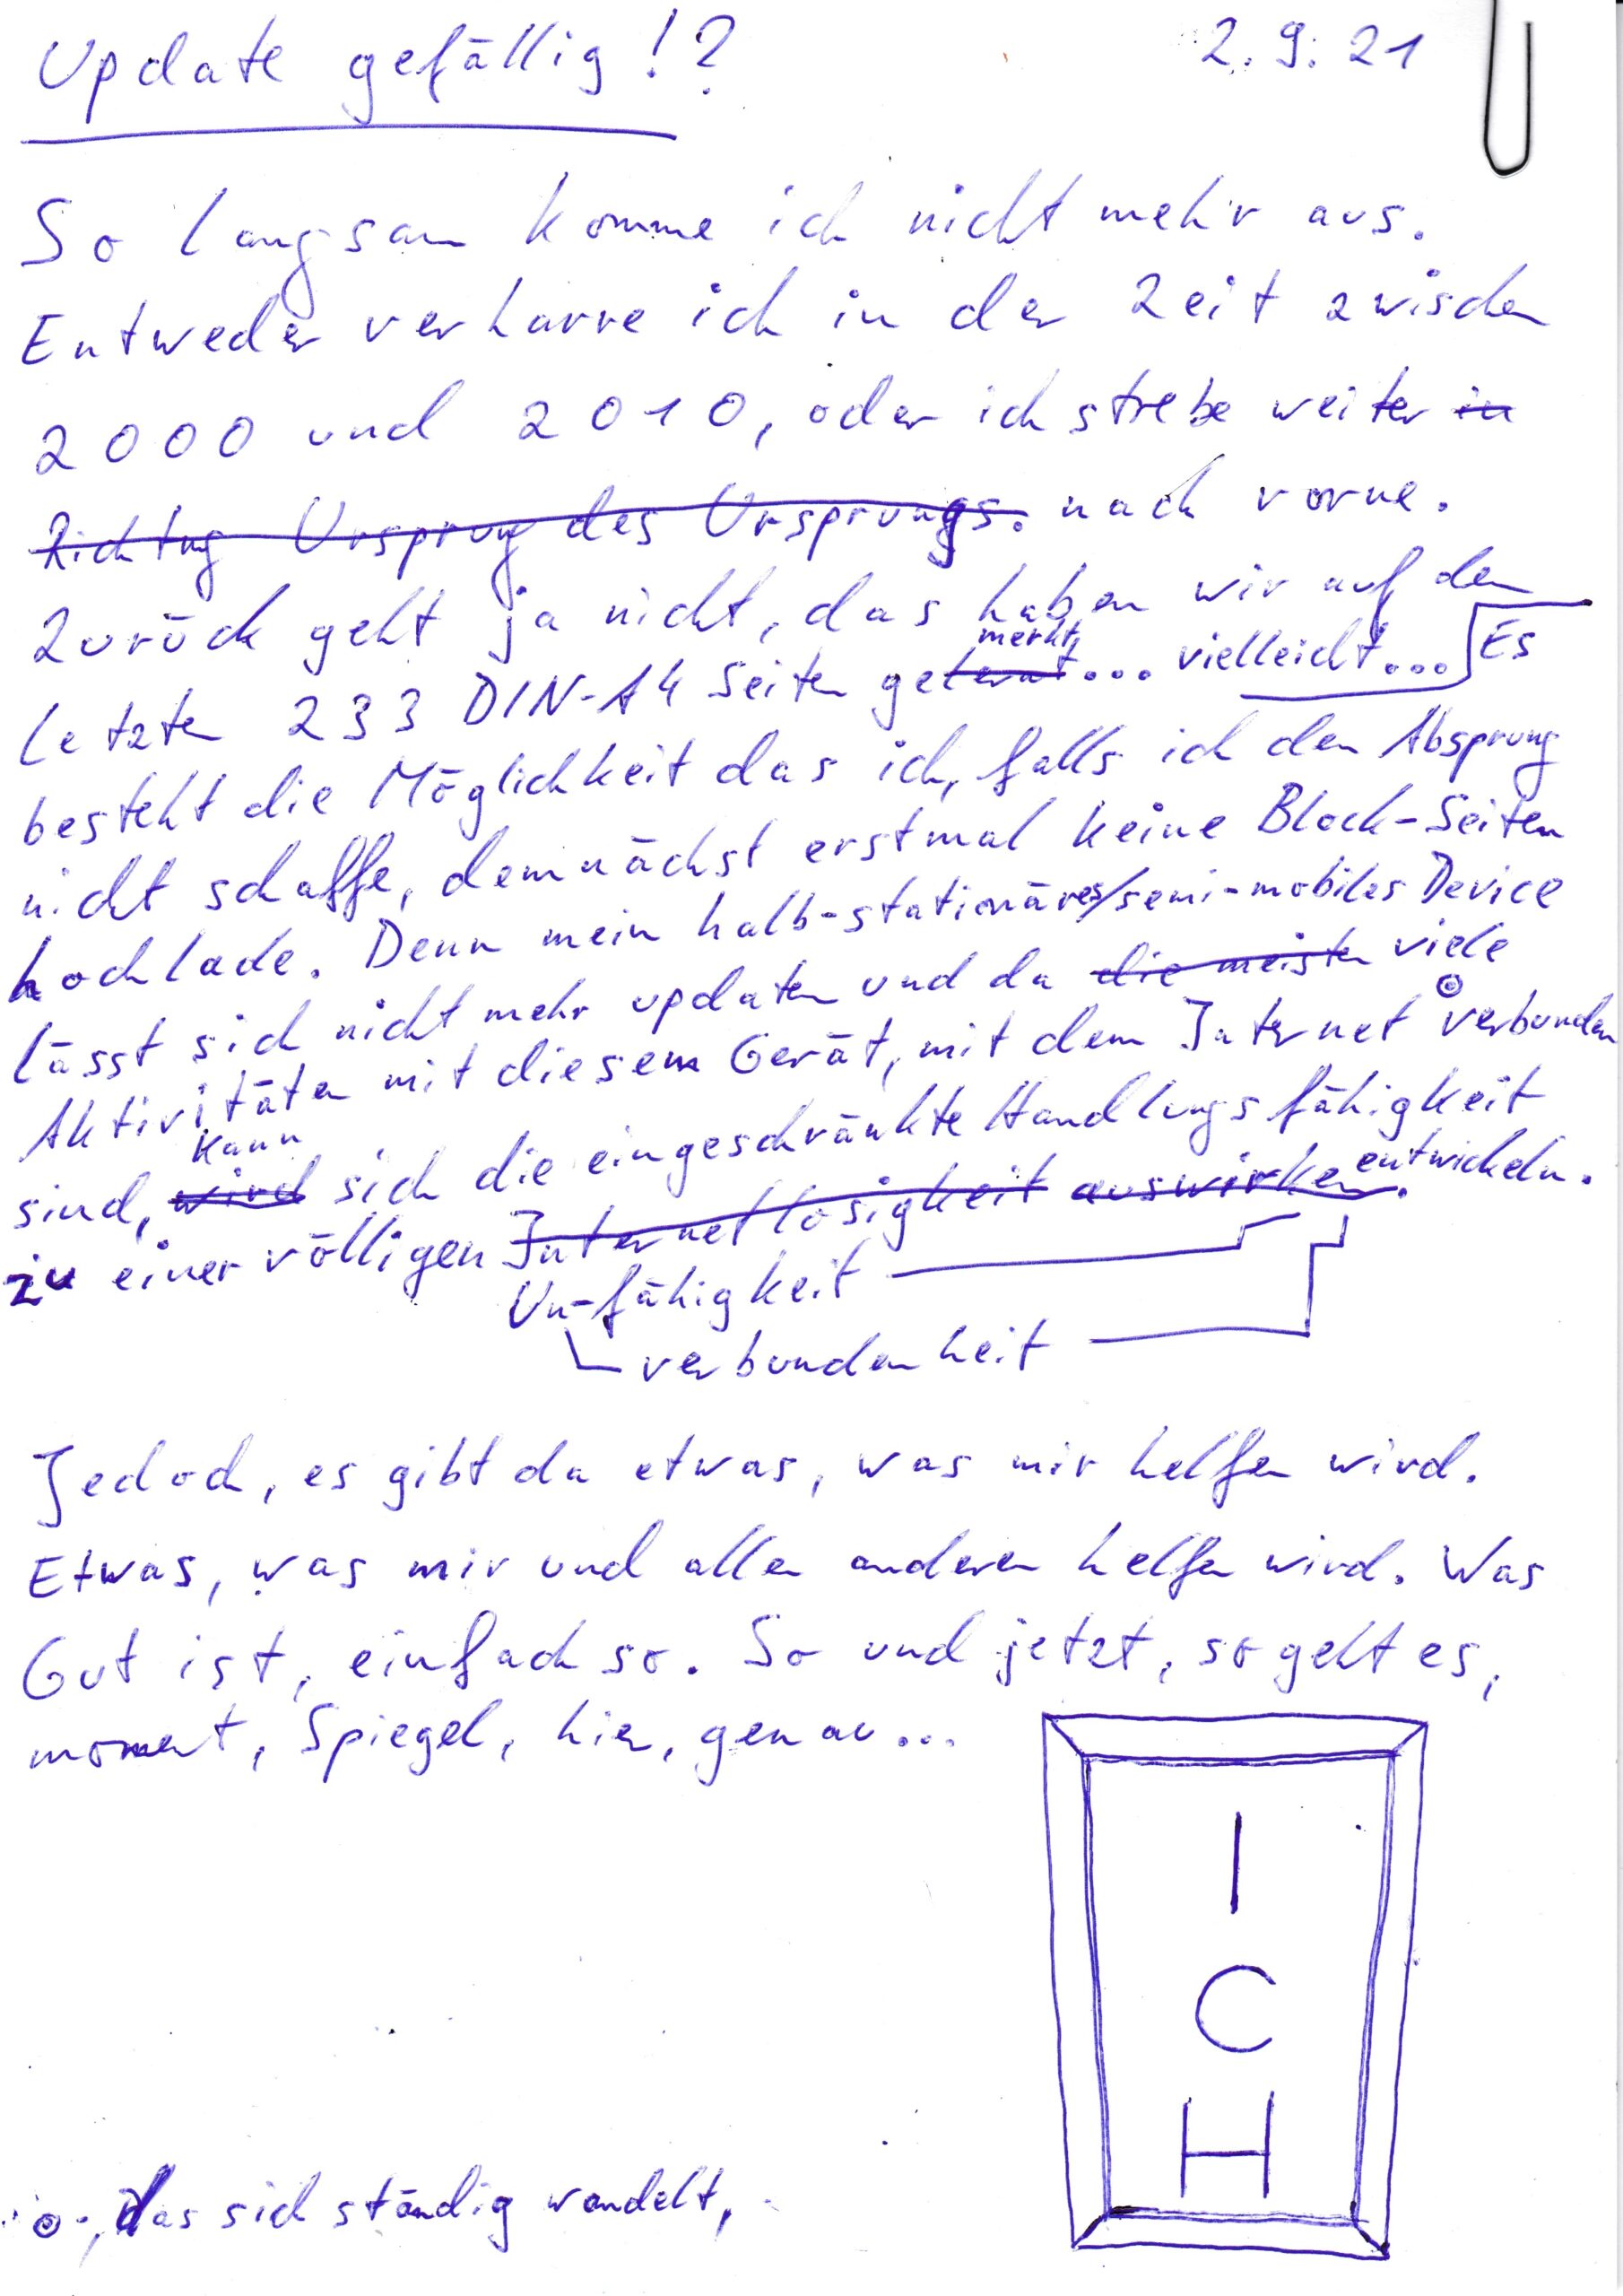 Update gefällig!? 2.9.21
So langsam komme ich nicht mehr aus.
Entweder verharre ich in der Zeit zwischen
2000 und 2010, oder ich strebe weiter in
Richtung Ursprung des Ursprungs. nach vorne.
Zurück geht ja nicht, das haben wir auf den
merkt,
letzten 233 DIN-A4 Seiten gelernt... vielleicht... Es
besteht die Möglichkeit das ich, falls ich den Absprung
nicht schaffe, demnächst erstmal keine Block-Seiten
hochlade. Denn mein halb-stationäres/semi-mobiles Device
lässt sich nicht mehr updaten und da die meisten viele
Aktivitäten mit diesem Gerät, mit dem Internet verbunden
kann
sind, wird sich die eingeschränkte Handlungsfähigkeit
zu einer völligen Internetlosigkeit auswirken. entwickeln.
Un-fähigkeit
verbundenheit
Jedoch, es gibt da etwas, was mir helfen wird.
Etwas, was mir und allen anderen helfen wird. Was
Gut ist, einfach so. So und jetzt, so geht es,
moment, Spiegel, hier, genau...
I
C
H
, das sich ständig wandelt,